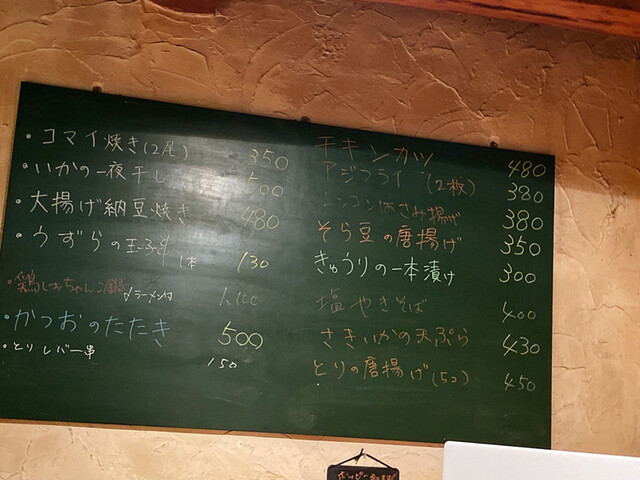 ・コマイ焼き(2尾) 350
・いかの一夜干し 500
・大揚げ納豆焼き 480
・うずらの玉子串 1本 130
・鶏しおちゃんこ鍋
〆ラーメン付 1,100
・かつおのたたき 500
・とりレバー串 150
チキンカツ 480
アジフライ(2枚) 380
レンコンはさみ揚げ 380
そら豆の唐揚げ 350
きゅうりの一本漬け 300
塩やきそば 400
さきいかの天ぷら 430
とりの唐揚げ(5コ) 450
ホッピー